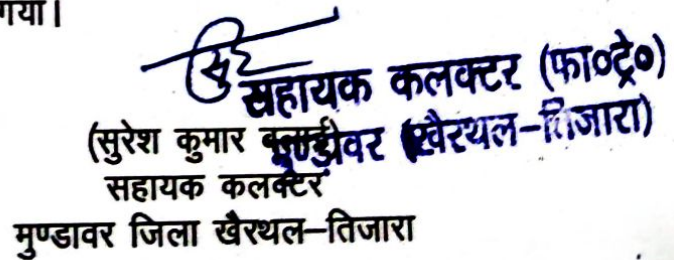 गया।
सहायक कलक्टर (फा०ट्रे०)
मुण्डावर (खैरथल-तिजारा)
(सुरेश कुमार
सहायक कलक्टर
मुण्डावर जिला खैरथल–तिजारा